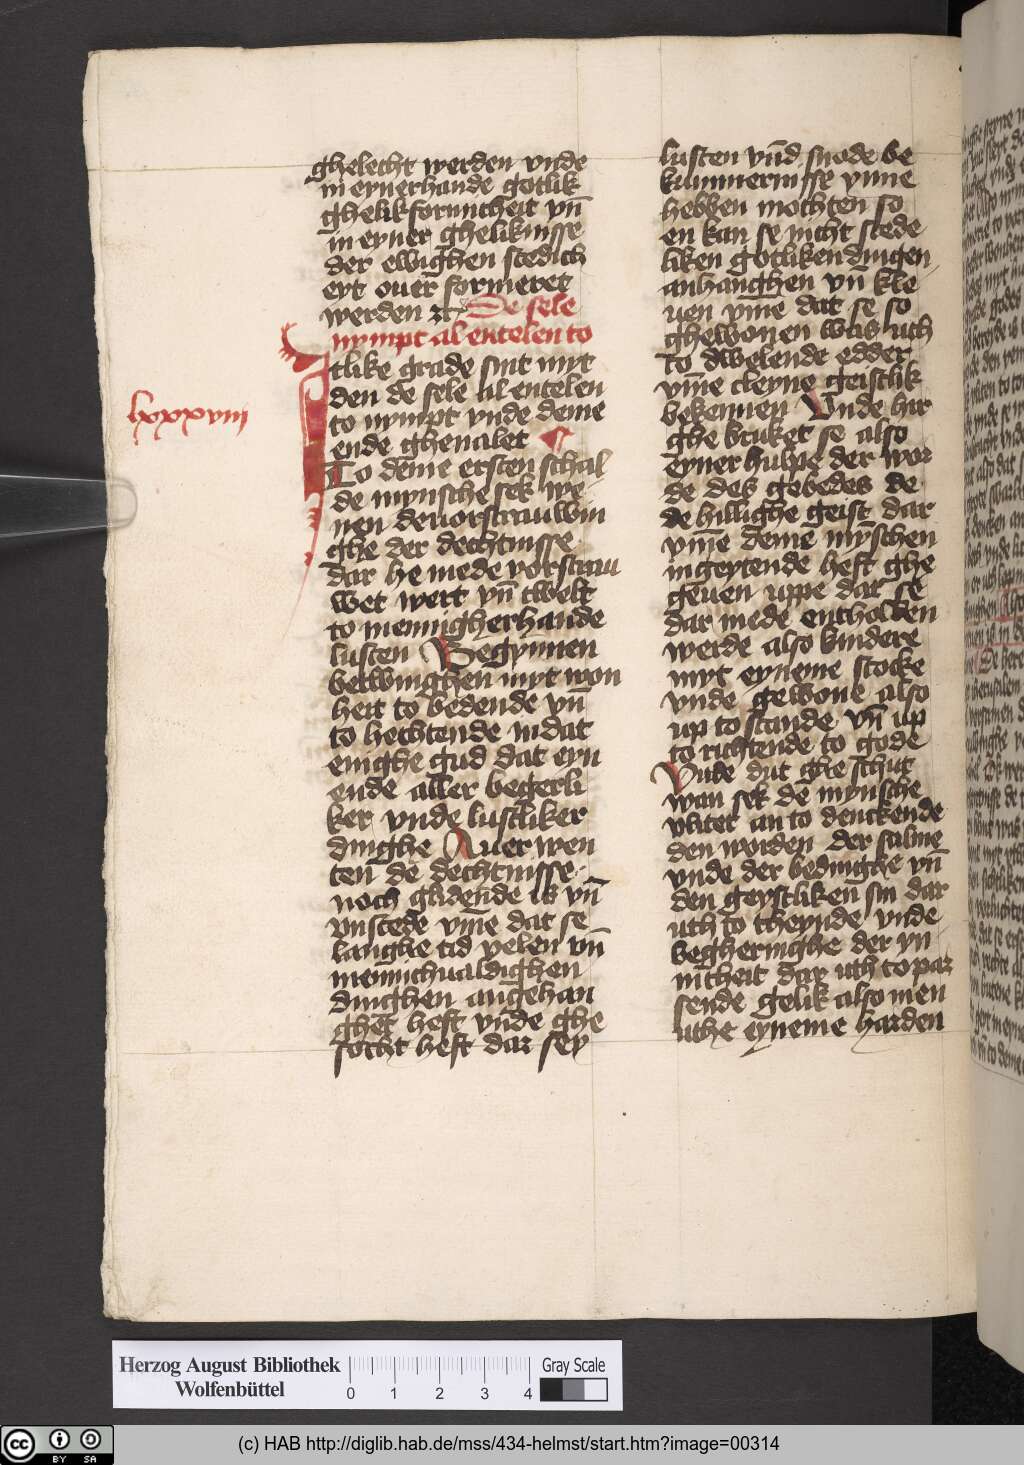 ghelecht werden vnde
in eynerhande gotlik
ghelikformicheit vn̄
in eyner gheliknisse
der ewighen stedich
eyt ouer formeret
werden ꝛc De sele
nympt al entelen to
Itlike grade sint myt
den de sele al entelen
to nympt vnde deme
ende ghenalet
lxxxviii
To deme ersten schal
de mynsche sek we
nen de vorstrauwin
ghe der dechtnisse
dar he mede vorstrau
wet wert vn̄ twelt
to mennigherhande
lusten Begynnen
betwinghen myt won
heit to bedende vn̄
to hechtende in dat
enighe gud dat eyn
ende aller begerli
ker vnde lustliker
dinghe Auer wen
ten de dechtnisse
noch glidende is vn̄
vnstede vm̄e dat se
langhe tid velen vn̄
mennichualdighen
dinghen angehan
ghet heft vnde ghe
socht heft dar sey
lusten vn̄d snode be
kummernisse ynne
hebben mochten so
en kan se nicht stede
liken gotliken dingen
anhanghen vn̄ kle
uen vm̄e dat se so
ghewonen was uth
to dwelende edder
vm̄e cleyne geistlik
bekennen Vnde hir
ghe bruket se also
eyner hulpe der wor
de des gebedes de
de hillighe geist dar
vm̄e deme mȳschen
ingeytende heft ghe
geuen uppe dat se
dar mede entholden
werde also bindere
myt eyneme stocke
vnde gewone also
up to stande vn̄ up
to richtende to gode
Vnde dyt ghe schut
wan sek de mynsche
vlitet an to denckende
den worden der salme
vnde der bedinghe vn̄
den geystliken sin dar
uth to theynde vnde
begheringhe der yn
nicheit dar uth to par
sende gelik also men
uthe eyneme harden
Herzog August Bibliothek
Wolfenbüttel
0 1 2 3 4
Gray Scale
cc BY SA
(c) HAB http://diglib.hab.de/mss/434-helmst/start.htm?image=00314